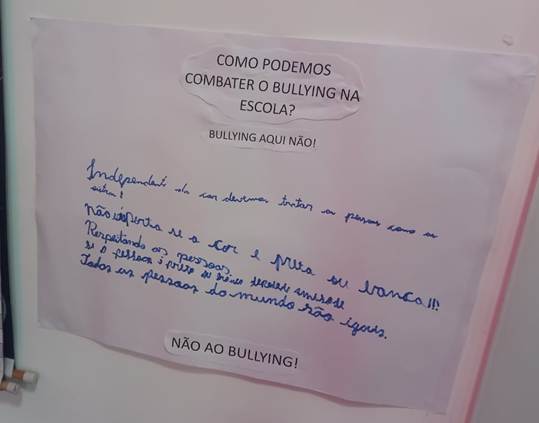 COMO PODEMOS
COMBATER O BULLYING NA
ESCOLA?
BULLYING AQUI NÃO!
Independent da cor devemos tratar as pessoas como as
outra!
Não importa se a cor e preta ou branca!!!
Respeitando as pessoas
se a pessoa é preta ou
Todas as pessoas do mundo são iguais.
NÃO AO BULLYING!